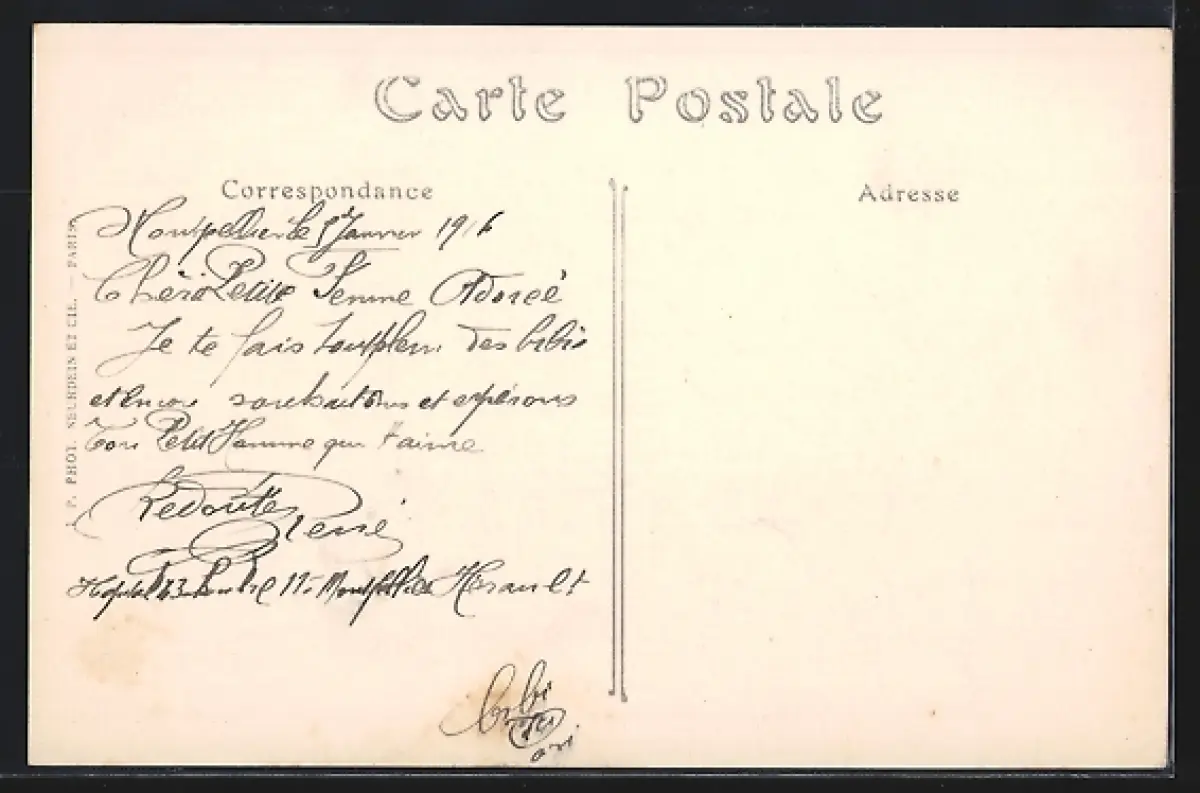 Carte Postale
Correspondance
Adresse
Montpellier le 5 Janvier 1916
Chéri Petite Femme Adorée
Je te fais tout plein des bibis
et encore souhaitons et espérons
Ton Petit Homme qui t'aime
Redoutte René
Hopital 43 11 Montpellier Herault
bibi
P. PHOT. NEURDEIN ET CIE. — PARIS